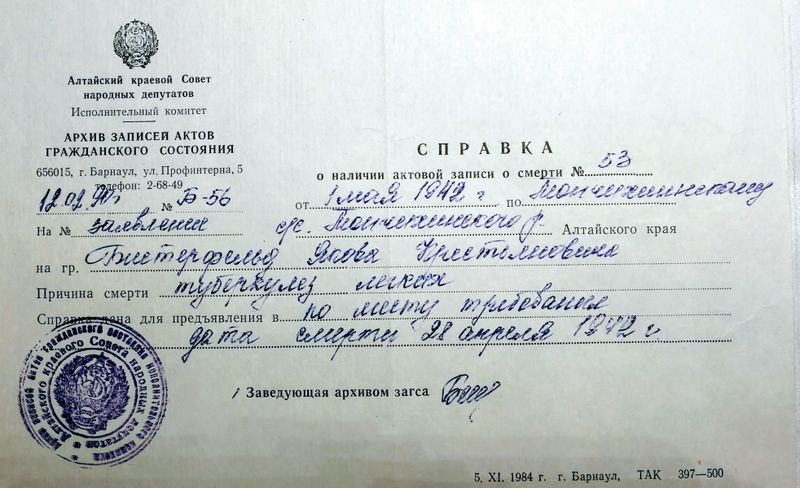 Алтайский краевой Совет
народных депутатов
Исполнительный комитет
АРХИВ ЗАПИСЕЙ АКТОВ
ГРАЖДАНСКОГО СОСТОЯНИЯ
656015, г. Барнаул, ул. Профинтерна, 5
телефон: 2-68-49
12.02.90г № Б-56
На № заявления
СПРАВКА
о наличии актовой записи о смерти № 53
от 1 мая 1942 г по
с/с. р. Алтайского края
на гр. Бистерфельд Якова Кристиановича
Причина смерти туберкулез легких
Справка дана для предъявления в по месту требования
дата смерти 28 апреля 1942 г
Заведующая архивом загса
Архив записей актов гражданского состояния исполнительного комитета
Алтайского краевого Совета народных депутатов
5. XI. 1984 г. г. Барнаул, ТАК 397—500